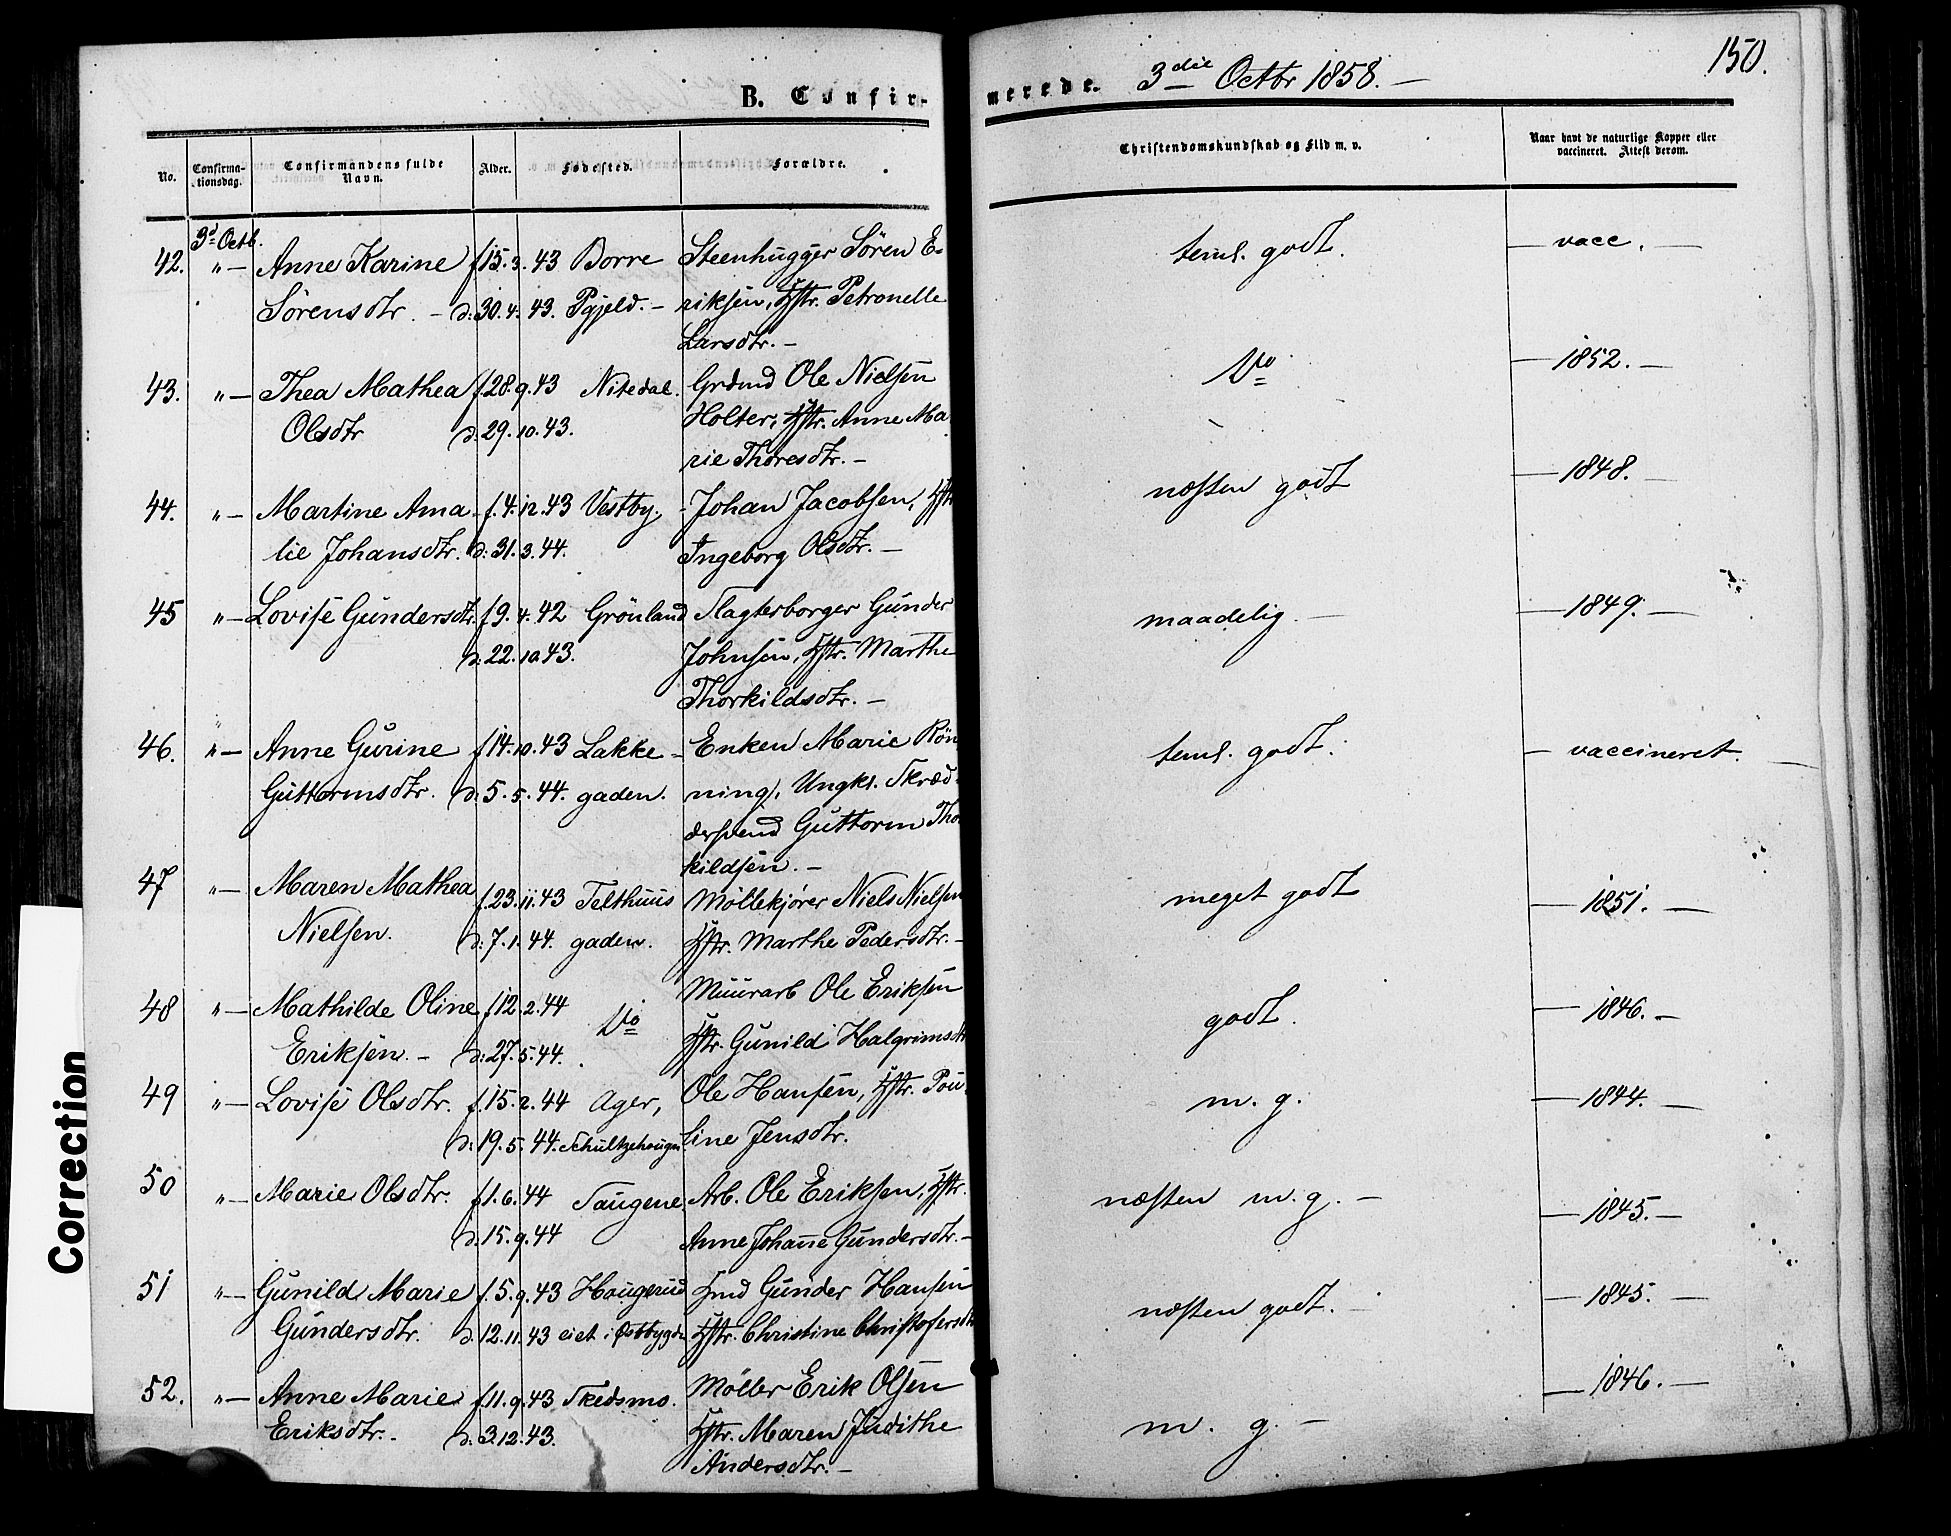 150.
B. Confir-
merede. 3die Octbr 1858. —
No.
Confirma-
tionsdag.
Confirmandens fulde
Navn.
Alder.
Fødested.
Forældre.
Christendomskundskab og Flid m. v.
Naar havt de naturlige Kopper eller
vaccineret. Attest derom.
3d Octb.
42. "— Anne Karine f. 15. 3. 43 Borre Steenhugger Sören E- teml. godt. — vacc. —
Sörensdtr. — d. 30. 4. 43. Pgjeld. — riksen, Hstr. Petronelle
Larsdtr. —
43. "— Thea Mathea f. 28. 9. 43 Nitedal. Grdmd Ole Nielsen Do — 1852. —
Olsdtr d. 29. 10. 43. Holter, Hstr. Anne Ma
rie Thoresdtr. —
44. "— Martine Ama- f. 4. 12. 43 Vestby. Johan Jacobsen, Hstr næsten godt — 1848. —
lie Johansdtr. d. 31. 3. 44. Ingeborg Olsdtr. —
45 "— Lovise Gundersdtr. f. 9. 4. 42 Grönland Slagterborger Gunder maadelig. — — 1849. —
d. 22. 10 43. Johnsen, Hstr. Marthe
Thorkildsdtr. —
46. "— Anne Gurine f. 14. 10. 43 Lakke- Enken Marie Rön teml. godt. — vaccineret.
Guttormsdtr. d. 5. 5. 44. gaden. ning, Ungkl. Skræd-
dersvend Guttorm Thor
kildsen. —
47 "— Maren Mathea f. 23. 11. 43 Telthuus Möllekjörer Niels Nielsen meget godt — 1851. —
Nielsen. d. 7. 1. 44. gaden. Hstr. Marthe Pedersdtr. —
48 "— Mathilde Oline f. 12. 2. 44 Do Muurarb Ole Eriksen godt. — 1846. —
Eriksen. — d. 27. 5. 44. Hstr. Gunild Halgrimsdtr
49 "— Lovise Olsdtr. f. 15. 2. 44 Ager, Ole Hansen, Hstr. Pou- m. g. — 1844. —
d. 19. 5. 44. Schultzehougen line Jensdtr.
50 "— Marie Olsdtr. f. 1. 6. 44 Saugene Arb. Ole Eriksen, Hstr. næsten m. g. — — 1845. —
d. 15. 9. 44 Anne Johanne Gundersdtr. —
51 "— Gunild Marie f. 5. 9. 43 Hougerud Hmd Gunder Hansen næsten godt. — — 1845. —
Gundersdtr. d. 12. 11. 43 eiet i Östbygda Hstr. Christine Christofersdtr
52. "— Anne Marie f. 11. 9. 43 Skedsmo. Möller Erik Olsen m. g. — — 1846. —
Eriksdtr. — d. 3. 12. 43. Hstr. Maren Judithe
Andersdtr. —
Correction